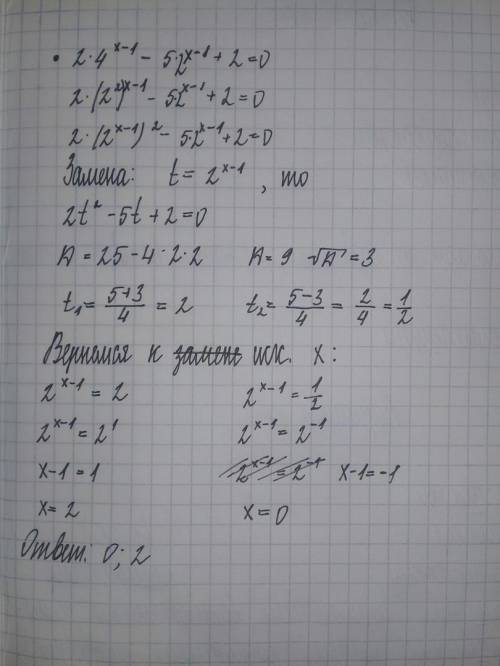 • 2·4^(x-1) - 5·2^(x-1) + 2 = 0
2·(2²)^(x-1) - 5·2^(x-1) + 2 = 0
2·(2^(x-1))² - 5·2^(x-1) + 2 = 0
Замена: t = 2^(x-1), то
2t² - 5t + 2 = 0
D = 25 - 4·2·2 D = 9 √D = 3
t₁ = (5+3)/4 = 2 t₂ = (5-3)/4 = 2/4 = 1/2
Вернемся к замене исх. x:
2^(x-1) = 2 2^(x-1) = 1/2
2^(x-1) = 2¹ 2^(x-1) = 2^(-1)
x-1 = 1 2^(x-1) = 2^(-1) x-1 = -1
x = 2 x = 0
Ответ: 0; 2